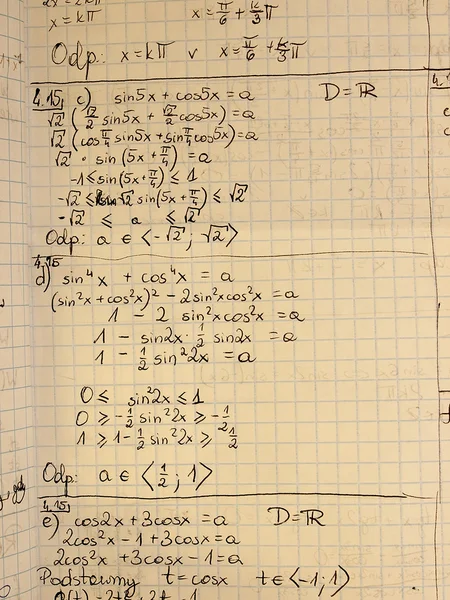 x = kπ x = π/6 + k/3 π
Odp: x = kπ v x = π/6 + k/3 π
4.15. c) sin5x + cos5x = a D = ℝ
√2 (√2/2 sin5x + √2/2 cos5x) = a
√2 (cos π/4 sin5x + sin π/4 cos5x) = a
√2 · sin (5x + π/4) = a
-1 ≤ sin(5x + π/4) ≤ 1
-√2 ≤ √2 sin(5x + π/4) ≤ √2
-√2 ≤ a ≤ √2
Odp: a ∈ ⟨-√2; √2⟩
4.15
d) sin⁴x + cos⁴x = a
(sin²x + cos²x)² - 2sin²xcos²x = a
1 - 2 sin²xcos²x = a
1 - sin2x · 1/2 sin2x = a
1 - 1/2 sin²2x = a
0 ≤ sin²2x ≤ 1
0 ≥ -1/2 sin²2x ≥ -1/2
1 ≥ 1 - 1/2 sin²2x ≥ 1/2
Odp: a ∈ ⟨1/2; 1⟩
4.15.
e) cos2x + 3cosx = a D = ℝ
2cos²x - 1 + 3cosx = a
2cos²x + 3cosx - 1 = a
Podstawmy t = cosx t ∈ ⟨-1; 1⟩